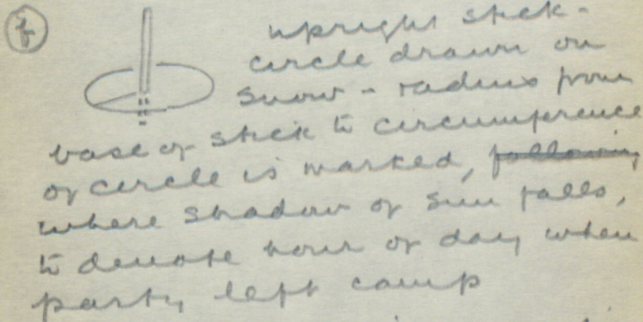 (f) upright stick -
circle drawn on
snow - radius from
base of stick to circumference
of circle is marked, following
where shadow of sun falls,
to denote hour of day when
party left camp